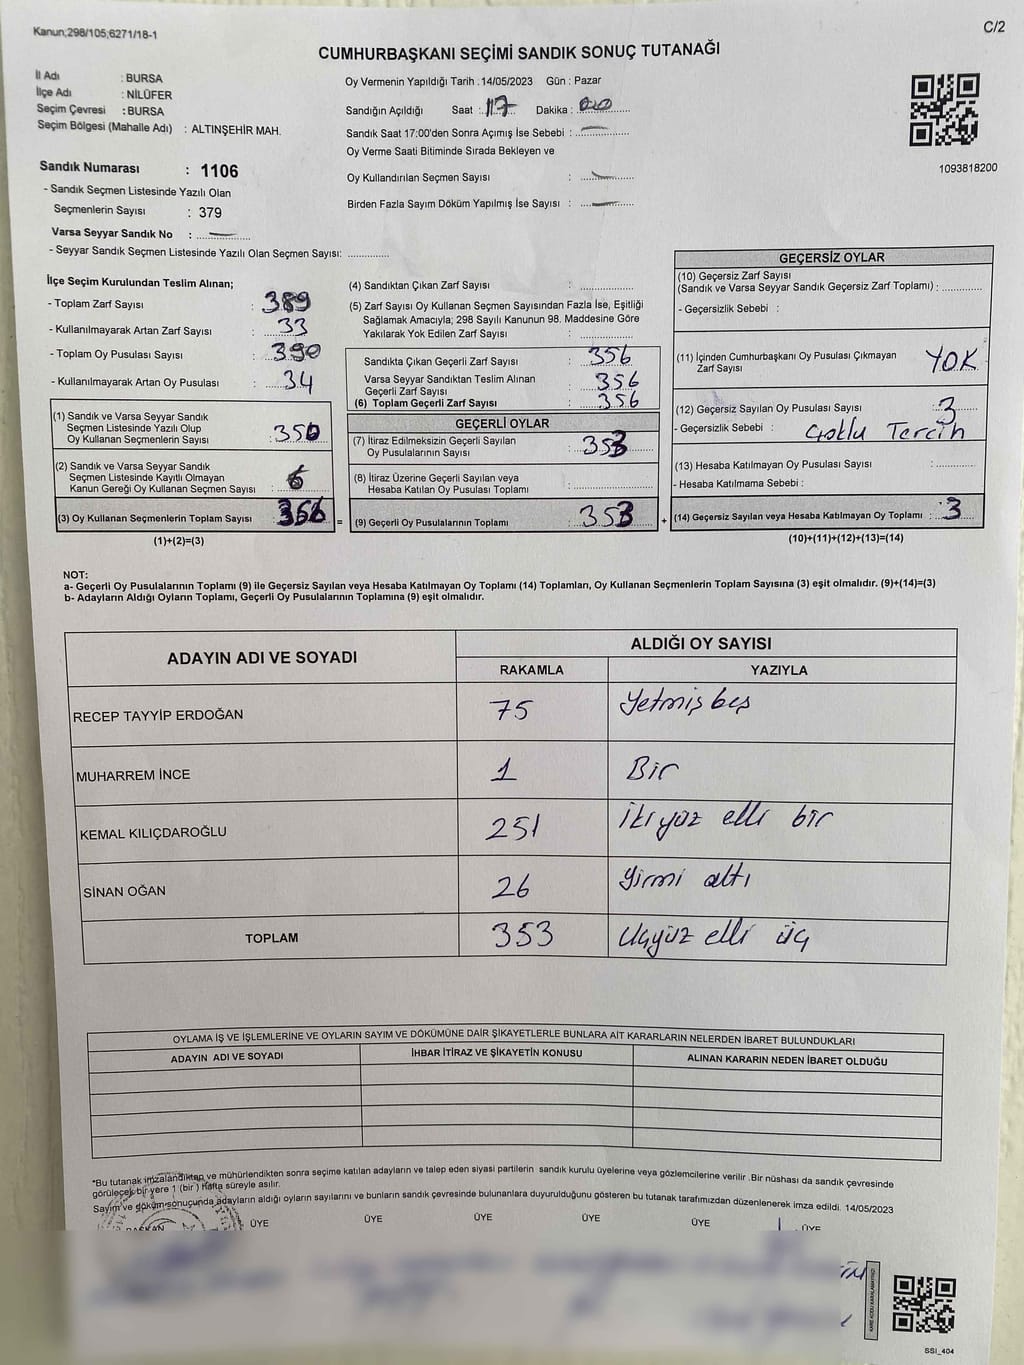 Kanun;298/105;6271/18-1
C/2
CUMHURBAŞKANI SEÇİMİ SANDIK SONUÇ TUTANAĞI
İl Adı : BURSA
İlçe Adı : NİLÜFER
Seçim Çevresi : BURSA
Seçim Bölgesi (Mahalle Adı) : ALTINŞEHİR MAH.
Sandık Numarası : 1106
- Sandık Seçmen Listesinde Yazılı Olan
Seçmenlerin Sayısı : 379
Varsa Seyyar Sandık No : —
- Seyyar Sandık Seçmen Listesinde Yazılı Olan Seçmen Sayısı: ..............
Oy Vermenin Yapıldığı Tarih : 14/05/2023 Gün : Pazar
Sandığın Açıldığı Saat : 17 Dakika : 00
Sandık Saat 17:00'den Sonra Açımış İse Sebebi : —
Oy Verme Saati Bitiminde Sırada Bekleyen ve
Oy Kullandırılan Seçmen Sayısı : —
Birden Fazla Sayım Döküm Yapılmış İse Sayısı : —
1093818200
İlçe Seçim Kurulundan Teslim Alınan;
- Toplam Zarf Sayısı : 389
- Kullanılmayarak Artan Zarf Sayısı : 33
- Toplam Oy Pusulası Sayısı : 390
- Kullanılmayarak Artan Oy Pusulası : 34
(1) Sandık ve Varsa Seyyar Sandık
Seçmen Listesinde Yazılı Olup
Oy Kullanan Seçmenlerin Sayısı : 350
(2) Sandık ve Varsa Seyyar Sandık
Seçmen Listesinde Kayıtlı Olmayan
Kanun Gereği Oy Kullanan Seçmen Sayısı : 6
(3) Oy Kullanan Seçmenlerin Toplam Sayısı : 356 =
(1)+(2)=(3)
(4) Sandıktan Çıkan Zarf Sayısı :
(5) Zarf Sayısı Oy Kullanan Seçmen Sayısından Fazla İse, Eşitliği
Sağlamak Amacıyla; 298 Sayılı Kanunun 98. Maddesine Göre
Yakılarak Yok Edilen Zarf Sayısı :
Sandıkta Çıkan Geçerli Zarf Sayısı : 356
Varsa Seyyar Sandıktan Teslim Alınan
Geçerli Zarf Sayısı : 356
(6) Toplam Geçerli Zarf Sayısı : 356
GEÇERLİ OYLAR
(7) İtiraz Edilmeksizin Geçerli Sayılan
Oy Pusulalarının Sayısı : 353
(8) İtiraz Üzerine Geçerli Sayılan veya
Hesaba Katılan Oy Pusulası Toplamı :
(9) Geçerli Oy Pusulalarının Toplamı : 353 +
GEÇERSİZ OYLAR
(10) Geçersiz Zarf Sayısı
(Sandık ve Varsa Seyyar Sandık Geçersiz Zarf Toplamı) :
- Geçersizlik Sebebi :
(11) İçinden Cumhurbaşkanı Oy Pusulası Çıkmayan
Zarf Sayısı YOK
(12) Geçersiz Sayılan Oy Pusulası Sayısı : 3
- Geçersizlik Sebebi : Çoklu Tercih
(13) Hesaba Katılmayan Oy Pusulası Sayısı :
- Hesaba Katılmama Sebebi :
(14) Geçersiz Sayılan veya Hesaba Katılmayan Oy Toplamı : 3
(10)+(11)+(12)+(13)=(14)
NOT:
a- Geçerli Oy Pusulalarının Toplamı (9) ile Geçersiz Sayılan veya Hesaba Katılmayan Oy Toplamı (14) Toplamları, Oy Kullanan Seçmenlerin Toplam Sayısına (3) eşit olmalıdır. (9)+(14)=(3)
b- Adayların Aldığı Oyların Toplamı, Geçerli Oy Pusulalarının Toplamına (9) eşit olmalıdır.
ADAYIN ADI VE SOYADI
ALDIĞI OY SAYISI
RAKAMLA YAZIYLA
RECEP TAYYİP ERDOĞAN 75 Yetmiş beş
MUHARREM İNCE 1 Bir
KEMAL KILIÇDAROĞLU 251 İkiyüz elli bir
SİNAN OĞAN 26 Yirmi altı
TOPLAM 353 Üçyüz elli üç
OYLAMA İŞ VE İŞLEMLERİNE VE OYLARIN SAYIM VE DÖKÜMÜNE DAİR ŞİKAYETLERLE BUNLARA AİT KARARLARIN NELERDEN İBARET BULUNDUKLARI
ADAYIN ADI VE SOYADI İHBAR İTİRAZ VE ŞİKAYETİN KONUSU ALINAN KARARIN NEDEN İBARET OLDUĞU
*Bu tutanak imzalandıktan ve mühürlendikten sonra seçime katılan adayların ve talep eden siyasi partilerin sandık kurulu üyelerine veya gözlemcilerine verilir .Bir nüshası da sandık çevresinde
görülecek bir yere 1 (bir ) hafta süreyle asılır.
Sayım ve döküm sonuçunda adayların aldığı oyların sayılarını ve bunların sandık çevresinde bulunanlara duyurulduğunu gösteren bu tutanak tarafımızdan düzenlenerek imza edildi. 14/05/2023
BAŞKAN ÜYE ÜYE ÜYE ÜYE ÜYE ÜYE
SSI_404